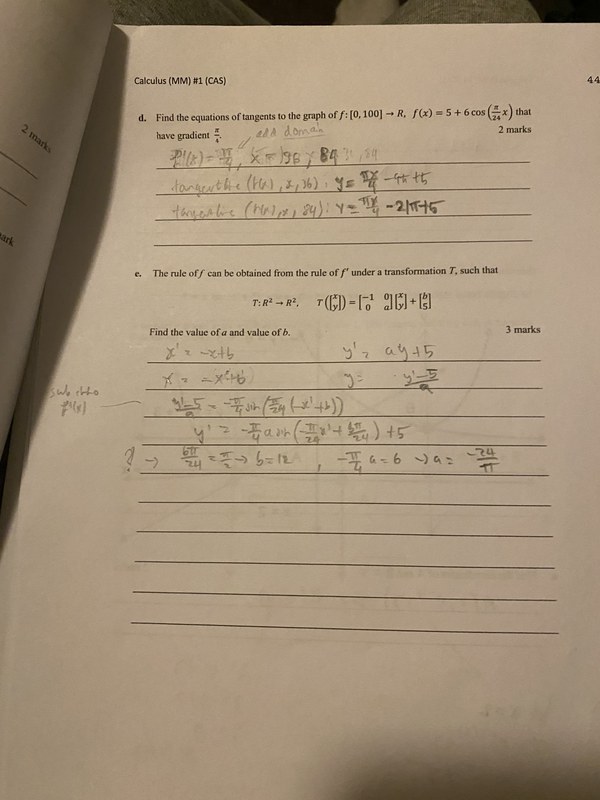 Calculus (MM) #1 (CAS)
44
2 marks
d. Find the equations of tangents to the graph of f: [0, 100] → R, f(x) = 5 + 6 cos (π/24 x) that
have gradient π/4.
add domain
2 marks
f'(x) = π/4, x = 36, 84
tangentline (f(x), x, 36): y = πx/4 - 9π + 5
tangentline (f(x), x, 84): y = πx/4 - 21π + 5
e. The rule of f can be obtained from the rule of f' under a transformation T, such that
T: R² → R², T([x y]) = [-1 0 0 a][x y] + [b 5]
Find the value of a and value of b.
3 marks
x' = -x+b y' = ay+5
x = -x'+b y = y'-5/a
sub into f'(x)
y'-5/a = -π/4 sin(π/24(-x'+b))
y' = -π/4 a sin(-π/24 x' + bπ/24) + 5
? → bπ/24 = π/2 → b=12 , -π/4 a = 6 → a = -24/π